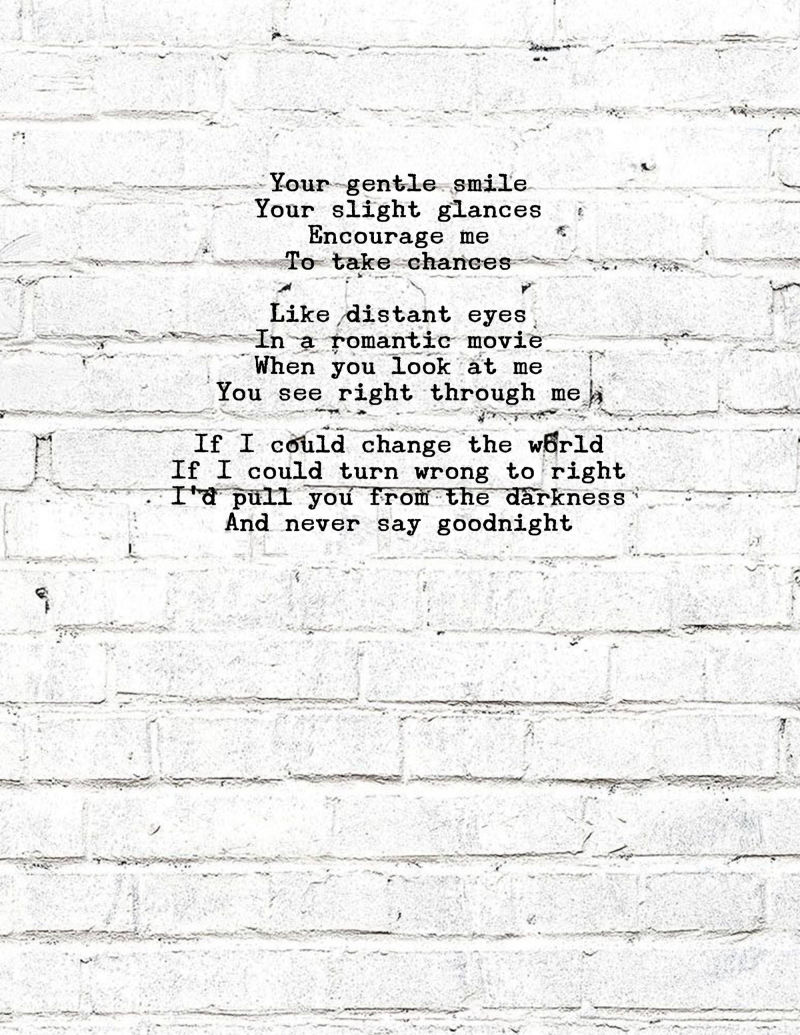 Your gentle smile
Your slight glances
Encourage me
To take chances
Like distant eyes
In a romantic movie
When you look at me
You see right through me
If I could change the world
If I could turn wrong to right
I'd pull you from the darkness
And never say goodnight